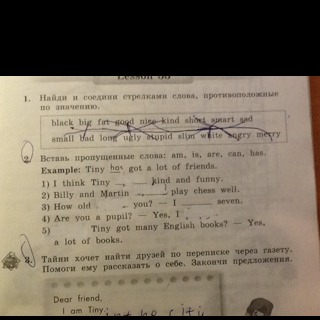 Lesson 56
1. Найди и соедини стрелками слова, противоположные
по значению.
black big fat good nice kind short smart sad
small bad long ugly stupid slim white angry merry
2. Вставь пропущенные слова: am, is, are, can, has.
Example: Tiny has got a lot of friends.
1) I think Tiny ___ kind and funny.
2) Billy and Martin ___ play chess well.
3) How old ___ you? — I ___ seven.
4) Are you a pupil? — Yes, I ___.
5) ___ Tiny got many English books? — Yes,
a lot of books.
3. Тайни хочет найти друзей по переписке через газету.
Помоги ему рассказать о себе. Закончи предложения.
Dear friend,
I am Tiny.